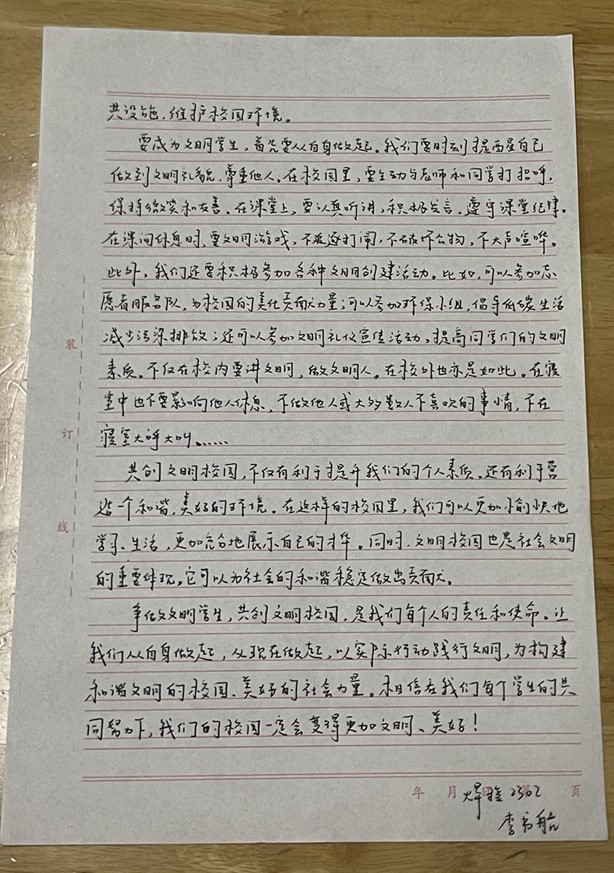 共设施,维护校园环境。
要成为文明学生,首先要从自身做起。我们要时刻提高自己
做到文明礼貌,尊重他人。在校园里,要主动与老师和同学打招呼,
保持微笑和友善。在课堂上,要认真听讲,积极发言,遵守课堂纪律。
在课间休息时,要文明游戏,不追逐打闹,不破坏公物,不大声喧哗。
此外,我们还要积极参加各种文明创建活动。比如,可以参加志
愿者服务队,为校园的美化贡献力量;可以参加环保小组,倡导低碳生活
减少污染排放;还可以参加文明礼仪宣传活动,提高同学们的文明
素质。不仅在校内要讲文明,做文明人。在校外也亦是如此。在寝
室中也不要影响他人休息,不做他人或大多数人不喜欢的事情,不在
寝室大呼大叫……
共创文明校园,不仅有利于提升我们的个人素质。还有利于营
造一个和谐、美好的环境。在这样的校园里,我们可以更加愉快地
学习、生活,更加充分地展示自己的才华。同时,文明校园也是社会文明
的重要体现,它可以为社会的和谐稳定做出贡献。
争做文明学生,共创文明校园,是我们每个人的责任和使命。让
我们从自身做起,从现在做起,以实际行动践行文明,为构建
和谐文明的校园、美好的社会力量。相信在我们每个学生的共
同努力下,我们的校园一定会变得更加文明、美好!
装
订
线
年 月 日 第 页
焊验2302
李书航